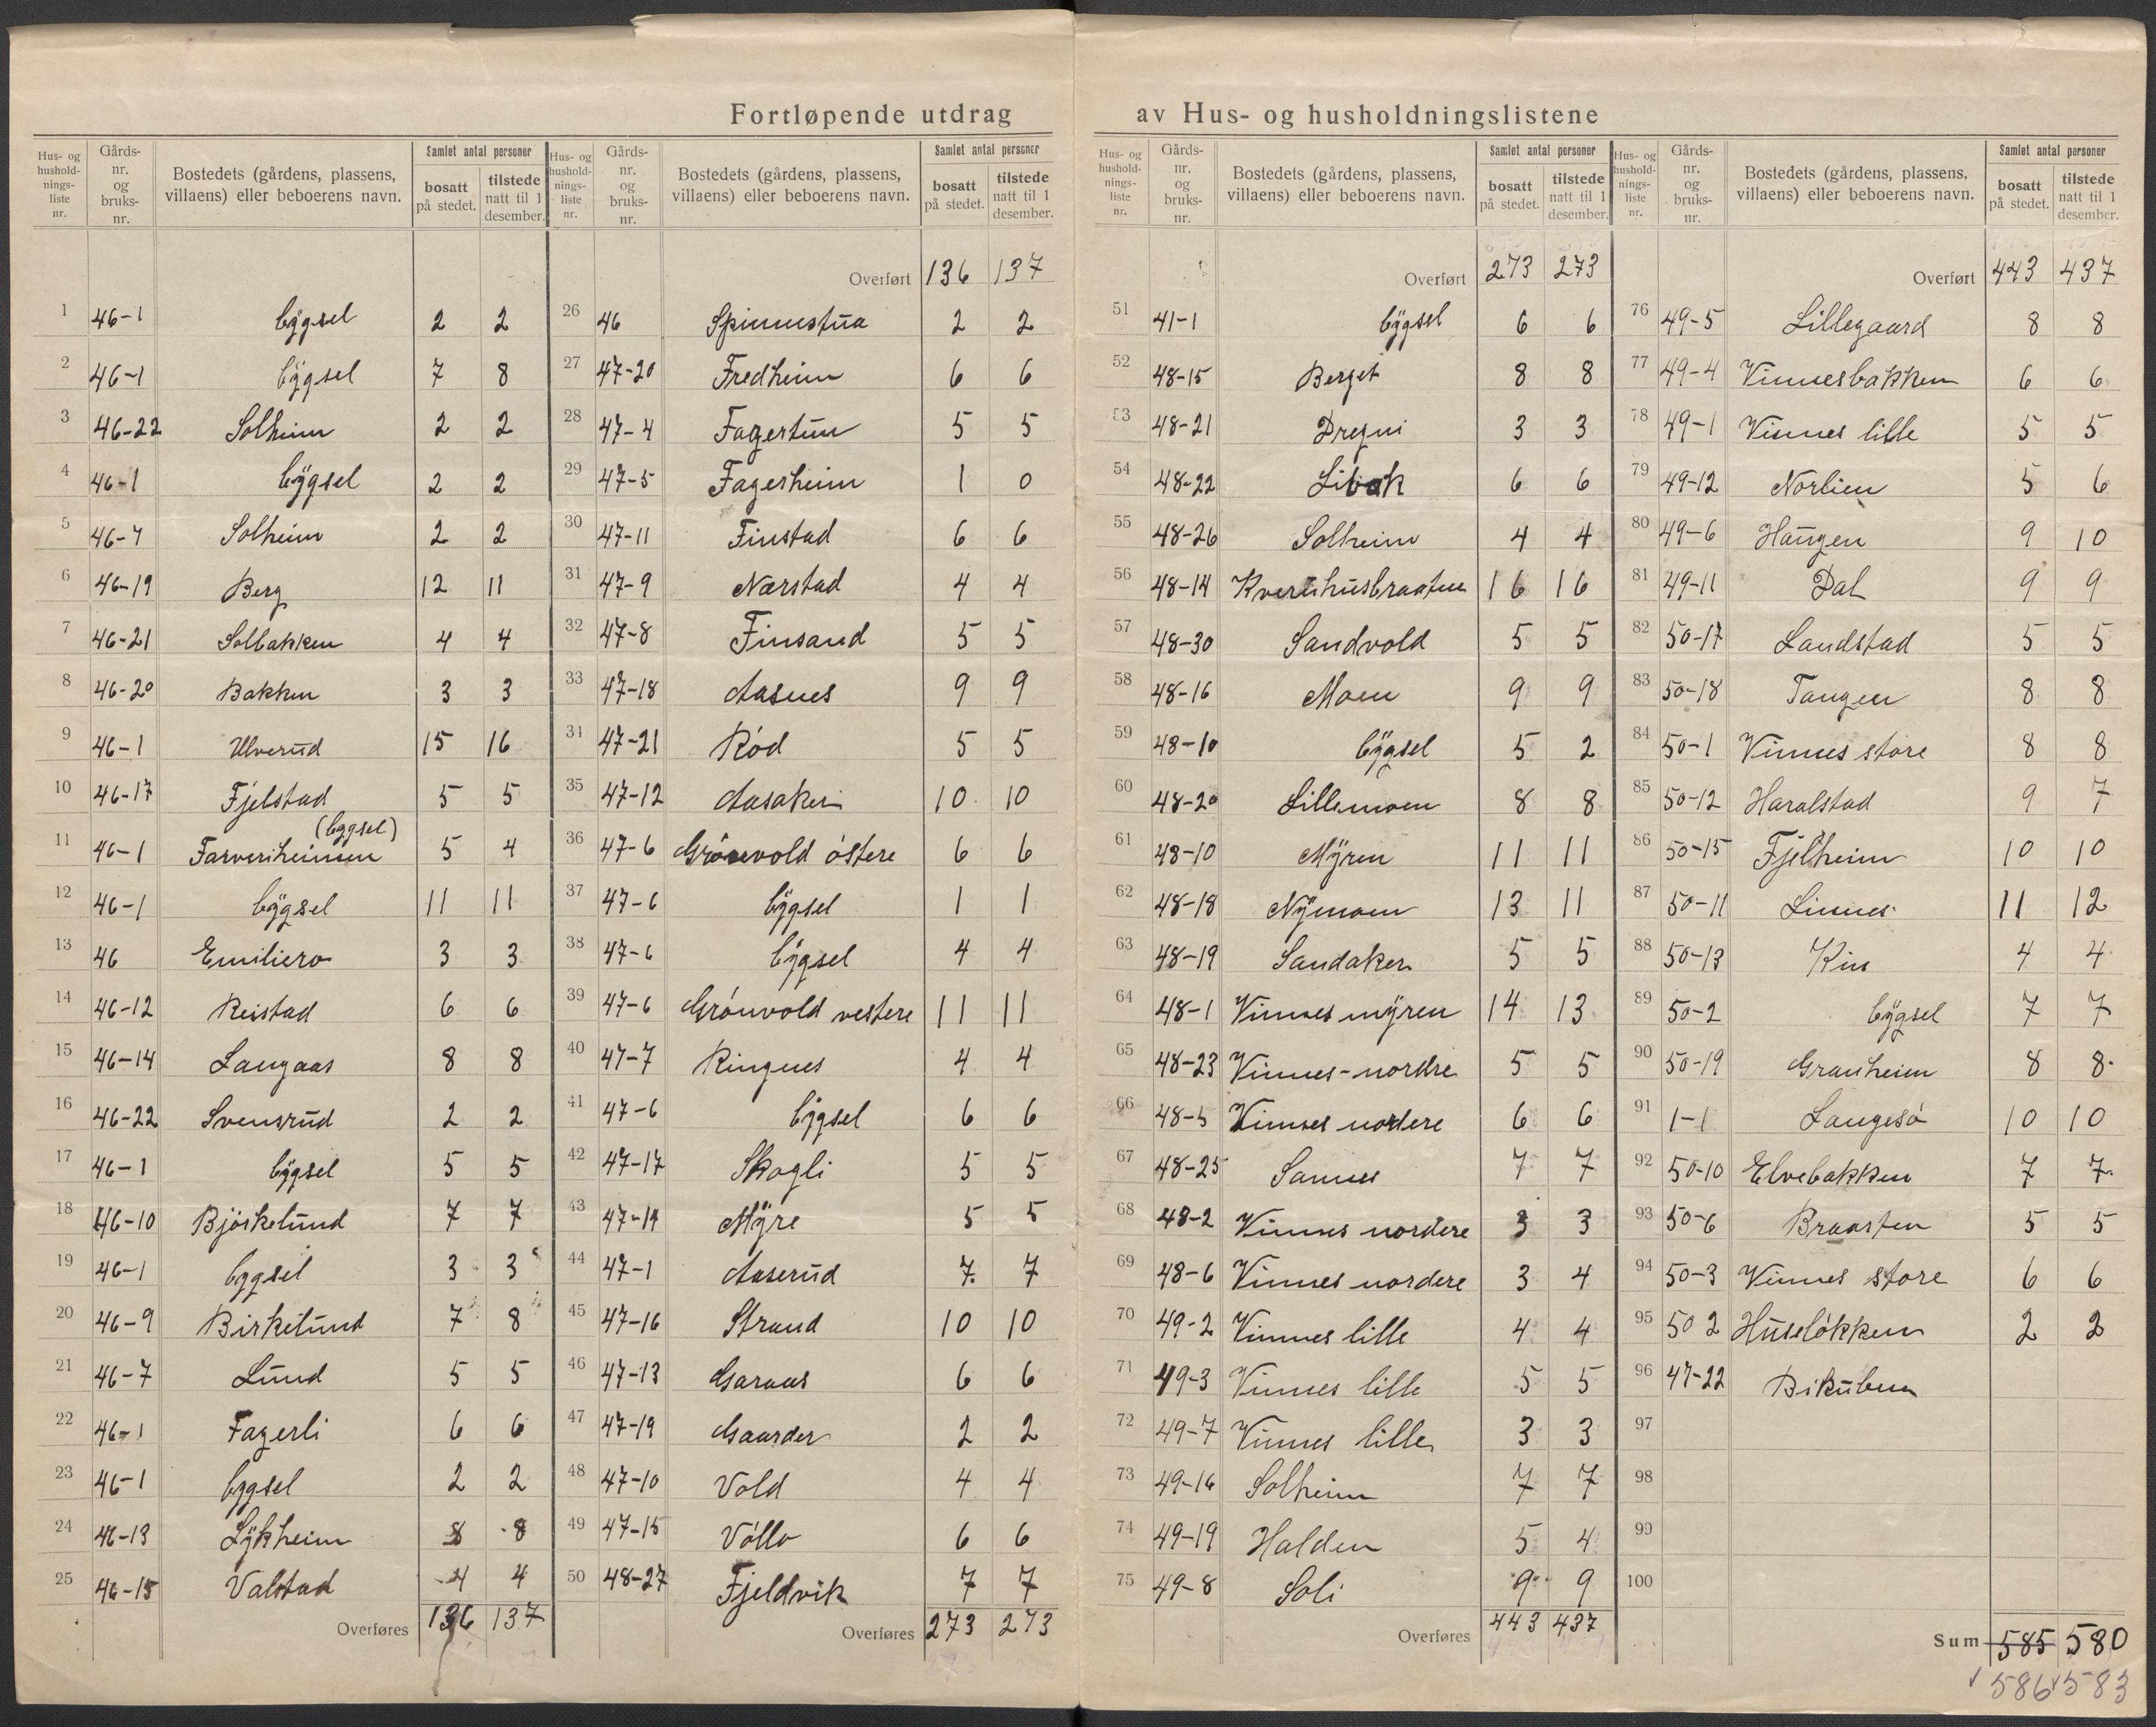 Fortløpende utdrag av Hus- og husholdningslistene
Hus- og hushold-nings-liste nr. Gårds-nr. og bruks-nr. Bostedets (gårdens, plassens, villaens) eller beboerens navn. Samlet antal personer bosatt på stedet. tilstede natt til 1 desember.
1 46-1 bÿgsel 2 2
2 46-1 bÿgsel 7 8
3 46-22 Solheim 2 2
4 46-1 bÿgsel 2 2
5 46-4 Solheim 2 2
6 46-19 Berg 12 11
7 46-21 Solbakken 4 4
8 46-20 Bakken 3 3
9 46-1 Ulverud 15 16
10 46-17 Fjelstad 5 5
11 46-1 Farveriheimen (bygsel) 5 4
12 46-1 bÿgsel 11 11
13 46 Emiliero 3 3
14 46-12 Reistad 6 6
15 46-14 Langaas 8 8
16 46-22 Svensrud 2 2
17 46-1 bÿgsel 5 5
18 46-10 Bjørkelund 7 7
19 46-1 bygsel 3 3
20 46-9 Birkelund 7 8
21 46-7 Lund 5 5
22 46-1 Fagerli 6 6
23 46-1 bygsel 2 2
24 46-13 Lÿkheim 8 8
25 46-15 Valstad 4 4
Overføres 136 137
Hus- og hushold-nings-liste nr. Gårds-nr. og bruks-nr. Bostedets (gårdens, plassens, villaens) eller beboerens navn. Samlet antal personer bosatt på stedet. tilstede natt til 1 desember.
Overført 136 137
26 46 Spinnestua 2 2
27 47-20 Fredheim 6 6
28 47-4 Fagertun 5 5
29 47-5 Fagerheim 1 0
30 47-11 Finstad 6 6
31 47-9 Nærstad 4 4
32 47-8 Finsand 5 5
33 47-18 Aasnes 9 9
34 47-21 Rød 5 5
35 47-12 Aasaker 10 10
36 47-6 Grønvold østere 6 6
37 47-6 bÿgsel 1 1
38 47-6 bÿgsel 4 4
39 47-6 Grønvold vestere 11 11
40 47-7 Ringnes 4 4
41 47-6 bÿgsel 6 6
42 47-17 Skogli 5 5
43 47-14 Mÿre 5 5
44 47-1 Aaserud 7 7
45 47-16 Strand 10 10
46 47-13 Garaas 6 6
47 47-19 Gaarder 2 2
48 47-10 Vold 4 4
49 47-15 Vøllo 6 6
50 48-27 Fjeldvik 7 7
Overføres 273 273
Hus- og hushold-nings-liste nr. Gårds-nr. og bruks-nr. Bostedets (gårdens, plassens, villaens) eller beboerens navn. Samlet antal personer bosatt på stedet. tilstede natt til 1 desember.
Overført 273 273
51 41-1 bÿgsel 6 6
52 48-15 Berget 8 8
53 48-21 Dregni 3 3
54 48-22 Libak 6 6
55 48-26 Solheim 4 4
56 48-14 Kvernhusbraaten 16 16
57 48-30 Sandvold 5 5
58 48-16 Moen 9 9
59 48-10 bÿgsel 5 2
60 48-20 Lillemoen 8 8
61 48-10 Mÿren 11 11
62 48-18 Nÿmoen 13 11
63 48-19 Sandaker 5 5
64 48-1 Vinnes mÿren 14 13
65 48-23 Vinnes-nordre 5 5
66 48-5 Vinnes nordere 6 6
67 48-25 Sannes 7 7
68 48-2 Vinnes nordere 3 3
69 48-6 Vinnes nordere 3 4
70 49-2 Vinnes lille 4 4
71 49-3 Vinnes lille 5 5
72 49-7 Vinnes lille 3 3
73 49-16 Solheim 7 7
74 49-19 Halden 5 4
75 49-8 Soli 9 9
Overføres 443 437
Hus- og hushold-nings-liste nr. Gårds-nr. og bruks-nr. Bostedets (gårdens, plassens, villaens) eller beboerens navn. Samlet antal personer bosatt på stedet. tilstede natt til 1 desember.
Overført 443 437
76 49-5 Lillegaard 8 8
77 49-4 Vinnesbakken 6 6
78 49-1 Vinnes lille 5 5
79 49-12 Norlien 5 6
80 49-6 Haugen 9 10
81 49-11 Dal 9 9
82 50-17 Landstad 5 5
83 50-18 Tangen 8 8
84 50-1 Vinnes store 8 8
85 50-12 Haralstad 9 7
86 50-15 Fjelheim 10 10
87 50-11 Linnes 11 12
88 50-13 4 4
89 50-2 bÿgsel 7 7
90 50-19 Granheim 8 8
91 1-1 Langesø 10 10
92 50-10 Elvebakken 7 7
93 50-6 Braaten 5 5
94 50-3 Vinnes store 6 6
95 50 2 Huseløkken 2 2
96 47-22 Bikuben
97
98
99
100
Sum 585 580
586 583